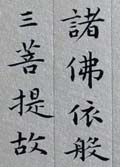 諸佛依般
三菩提故